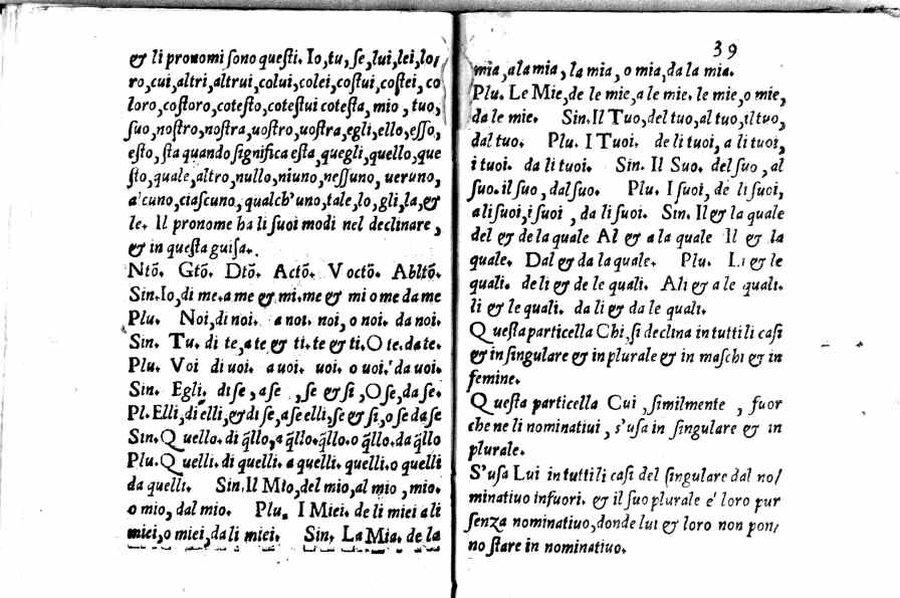 & li pronomi ſono queſti. Io, tu, ſe, lui, lei, lo/
ro, cui, altri, altrui, colui, colei, coſtui, coſtei, co
loro, coſtoro, coteſto, coteſtui coteſta, mio, tuo,
ſuo, noſtro, noſtra, uoſtro, uoſtra, egli, ello, eſſo,
eſto, ſta quando ſignifica eſta, quegli, quello, que
ſto, quale, altro, nullo, niuno, neſſuno, ueruno,
alcuno, ciaſcuno, qualch'uno, tale, lo, gli, la, &
le. Il pronome ha li ſuoi modi nel declinare,
& in queſta guiſa.
Ntō. Gtō. Dtō. Actō. Voctō. Abltō.
Sin. Io, di me. a me & mi. me & mi o me da me
Plu. Noi, di noi. a noi. noi, o noi. da noi.
Sin. Tu. di te, a te & ti. te & ti. O te. da te.
Plu. Voi di uoi. a uoi. uoi. o uoi. da uoi.
Sin. Egli. di ſe, a ſe, ſe & ſi, O ſe, da ſe.
Pl. Elli, di elli, & di ſe, a ſe elli, ſe & ſi, o ſe da ſe
Sin. Quello. di q̄llo, a q̄llo. q̄llo. o q̄llo. da q̄llo
Plu. Quelli. di quelli. a quelli. quelli. o quelli
da quelli. Sin. Il Mio, del mio, al mio, mio.
o mio, dal mio. Plu. I Miei. de li miei a li
miei, o miei, da li miei. Sin. La Mia. de la
39
mia, a la mia, la mia, o mia, da la mia.
Plu. Le Mie, de le mie, a le mie. le mie, o mie,
da le mie. Sin. Il Tuo, del tuo, al tuo, il tuo,
dal tuo. Plu. I Tuoi. de li tuoi, a li tuoi,
i tuoi. da li tuoi. Sin. Il Suo. del ſuo, al
ſuo. il ſuo, dal ſuo. Plu. I ſuoi, de li ſuoi,
a li ſuoi, i ſuoi, da li ſuoi. Sin. Il & la quale
del & de la quale Al & a la quale Il & la
quale. Dal & da la quale. Plu. Li & le
quali. de li & de le quali. Ali & a le quali.
li & le quali. da li & da le quali.
Queſta particella Chi, ſi declina in tutti li caſi
& in ſingulare & in plurale & in maſchi & in
femine.
Queſta particella Cui, ſimilmente, fuor
che ne li nominatiui, s'uſa in ſingulare & in
plurale.
S'uſa Lui in tutti li caſi del ſingulare dal no/
minatiuo infuori. & il ſuo plurale e' loro pur
ſenza nominatiuo, donde lui & loro non pon/
no ſtare in nominatiuo.